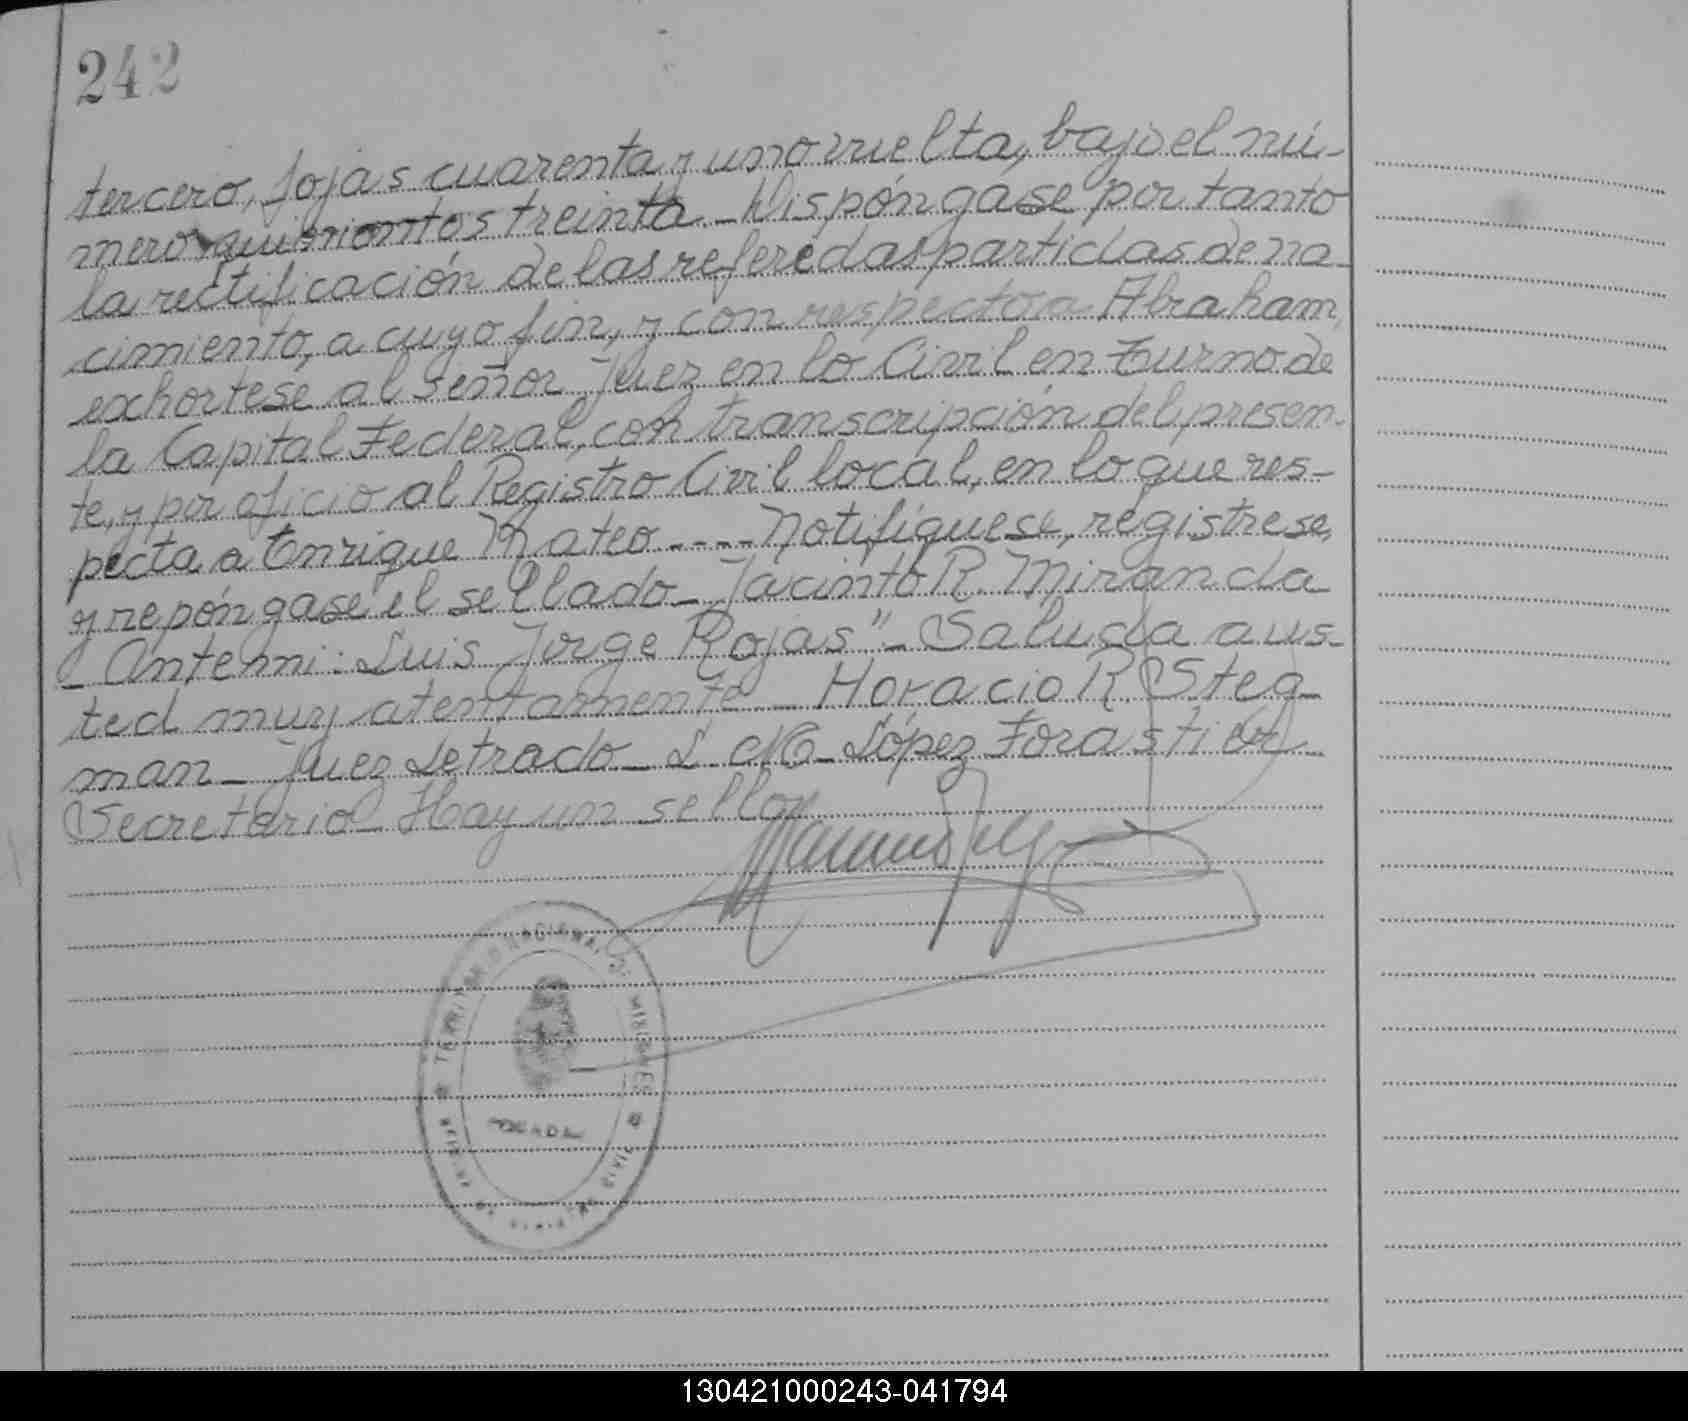 242
tercero, fojas cuarenta y uno vuelta, bajo el nú-
mero quinientos treinta._ Dispóngase por tanto
la rectificación de las referedas partidas de na-
cimiento, a cuyo fin, y con respecto a Abraham,
exhortese al señor Juez en lo Civil en Turno de
la Capital Federal, con transcripción del presen-
te, y por oficio al Registro Civil local, en lo que res-
pecta a Enrique Mateo---- Notifíquese, registrese,
y repóngase el sellado_ Jacinto R. Miranda
_ Antenni: Luis Jorge Rojas"_ Saluda a us-
ted muy atentamente_ Horacio R. Steg-
man_ Juez Letrado_ L. M. López Forastier
Secretario_ Hay un sello
TERRITORIO NACIONAL DE MISIONES
POSADAS
REGISTRO CIVIL
130421000243-041794